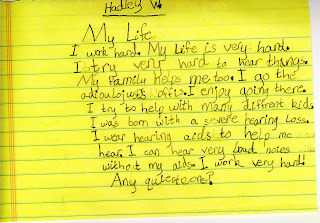 Hadley W.
My Life
I work hard. My life is very hard.
I try very hard to hear things.
My family helps me too. I go the
office. I enjoy going there.
I try to help with many diffrent kids.
I was born with a severe hearing loss.
I wear hearing aids to help me
hear. I can hear very loud noies
without my aids. I work very hard!
Any quiestcons?